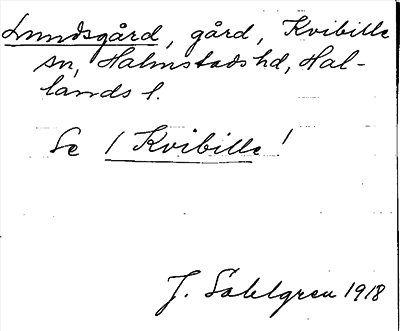 Lundsgård, gård, Kvibille
sn, Halmstads hd, Hal-
lands l.
Se / Kvibille !
J. Sahlgren 1918